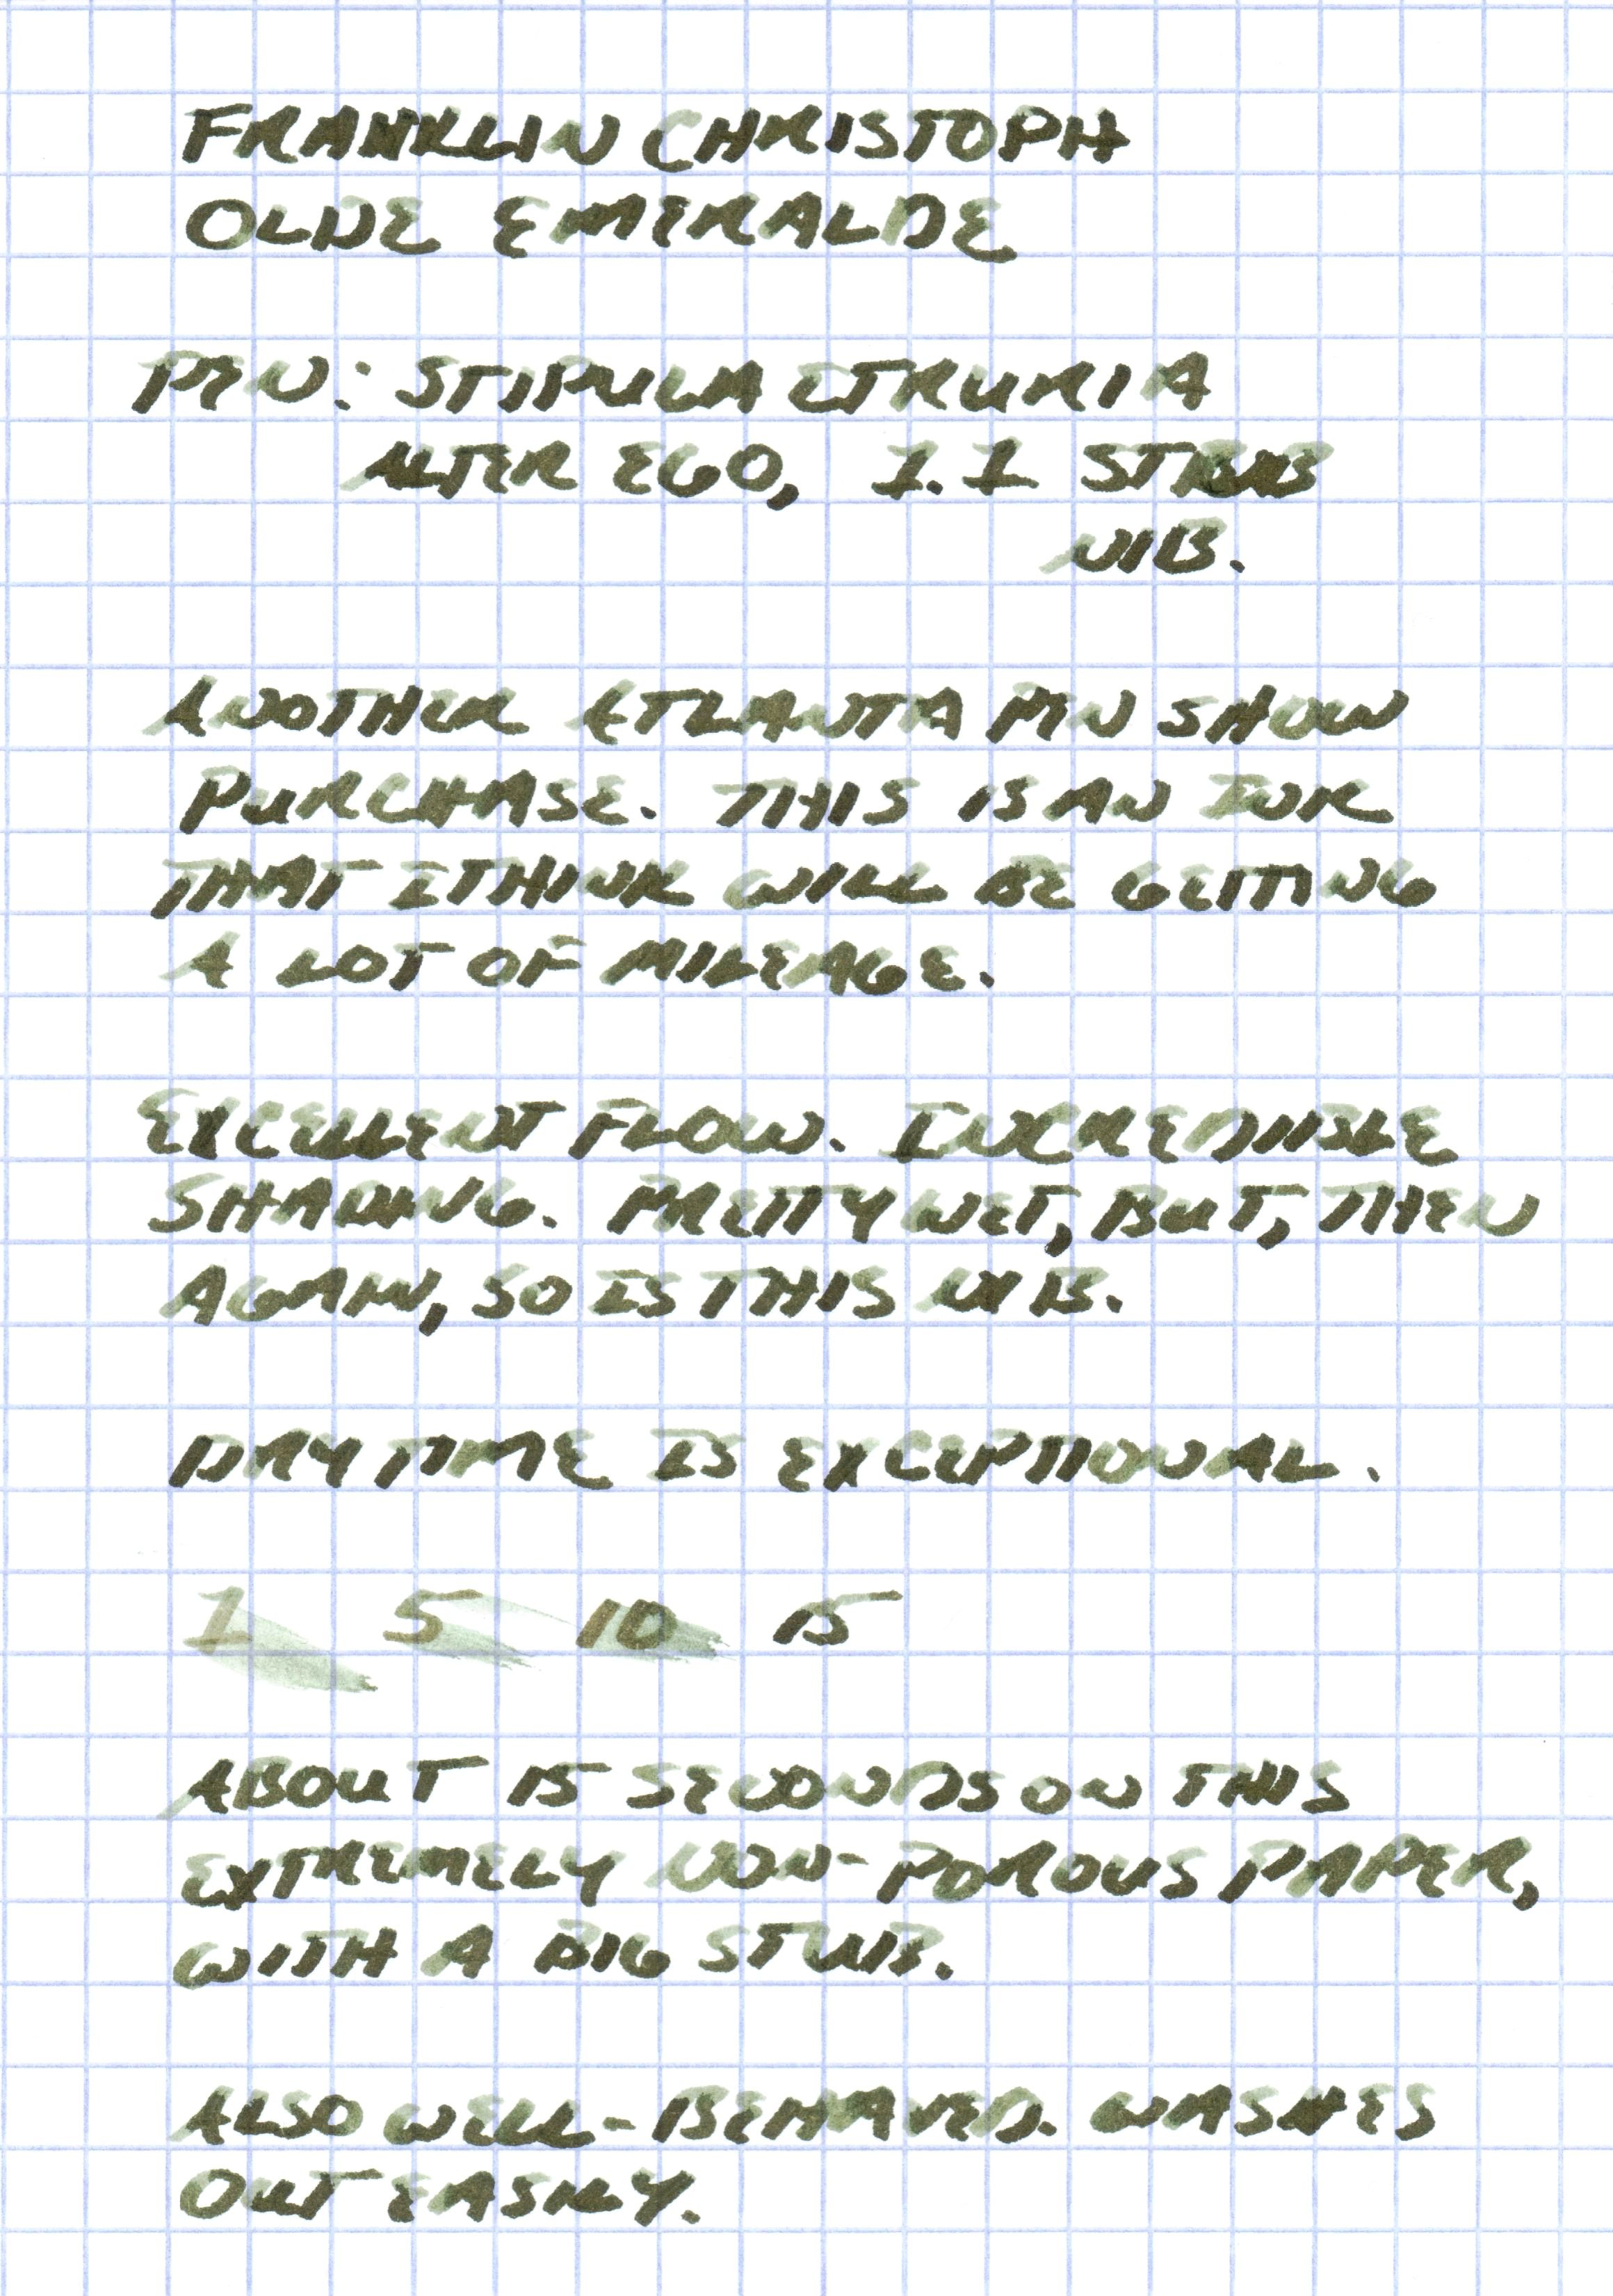 FRANKLIN CHRISTOPH
OLDE EMERALDE
PEN: STIPULA ETRURIA
ALTER EGO, 1.1 STUB
NIB.
ANOTHER ATLANTA PEN SHOW
PURCHASE. THIS IS AN INK
THAT I THINK WILL BE GETTING
A LOT OF MILEAGE.
EXCELLENT FLOW. INCREDIBLE
SHADING. PRETTY WET, BUT, THEN
AGAIN, SO IS THIS NIB.
DRY TIME IS EXCEPTIONAL.
1 5 10 15
ABOUT 15 SECONDS ON THIS
EXTREMELY NON-POROUS PAPER,
WITH A BIG STUB.
ALSO WELL-BEHAVED. WASHES
OUT EASILY.